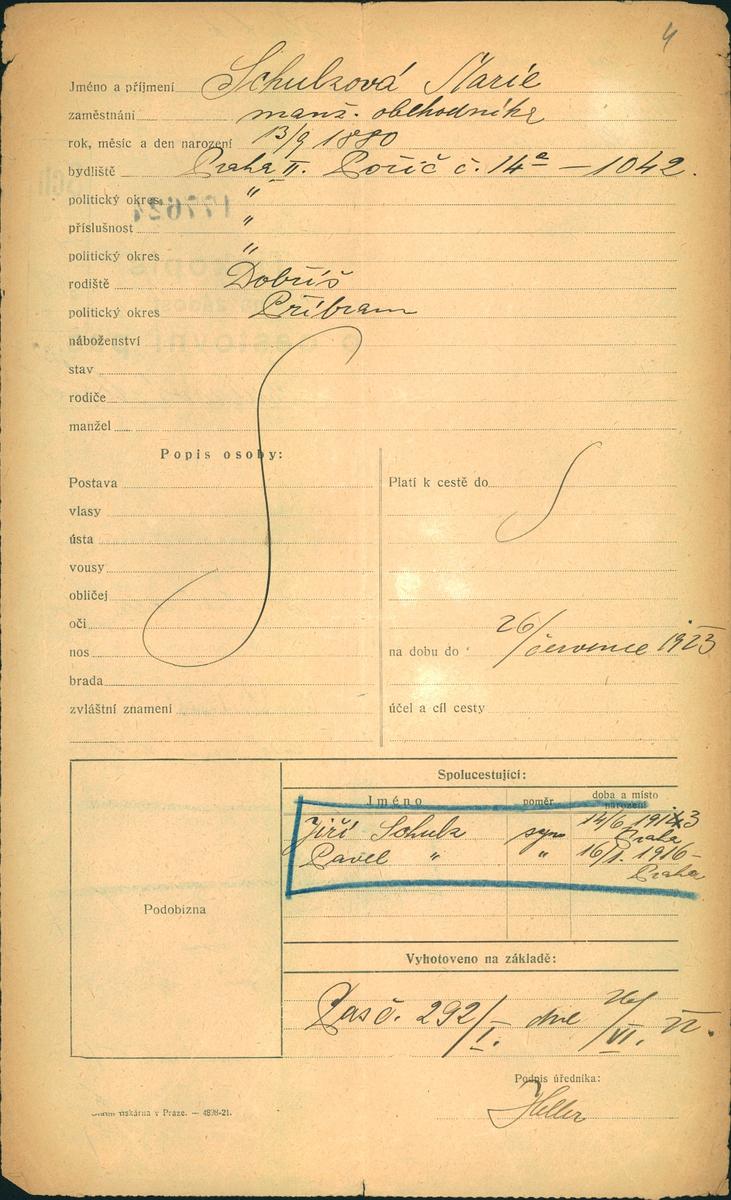 4
Jméno a příjmení Schulzová Marie
zaměstnání manž. obchodníka
rok, měsíc a den narození 13/9 1880
bydliště Praha II. Poříč č. 14a — 1042.
politický okres "
příslušnost "
politický okres "
rodiště Dobříš
politický okres Příbram
náboženství
stav
rodiče
manžel
Popis osoby:
Postava
vlasy
ústa
vousy
obličej
oči
nos
brada
zvláštní znamení
Platí k cestě do
na dobu do 26/ července 1923
účel a cíl cesty
Podobizna
Spolucestující:
Jméno poměr doba a místo narození
Jiří Schulz syn 14/6 1913 Praha
Pavel " " 16/1. 1916 - Praha
Vyhotoveno na základě:
Pas č. 292/I. dne 26/VI. 22.
Podpis úředníka:
Heller
tiskárna v Praze. — 4898-21.